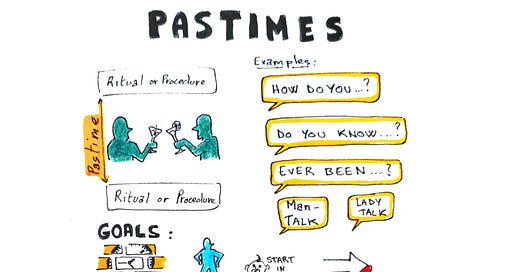 PASTIMES
Ritual or Procedure
Pastime
Ritual or Procedure
Examples:
HOW DO YOU...?
DO YOU KNOW...?
EVER BEEN...?
Man-
TALK
LADY
TALK
GOALS:
START
IN